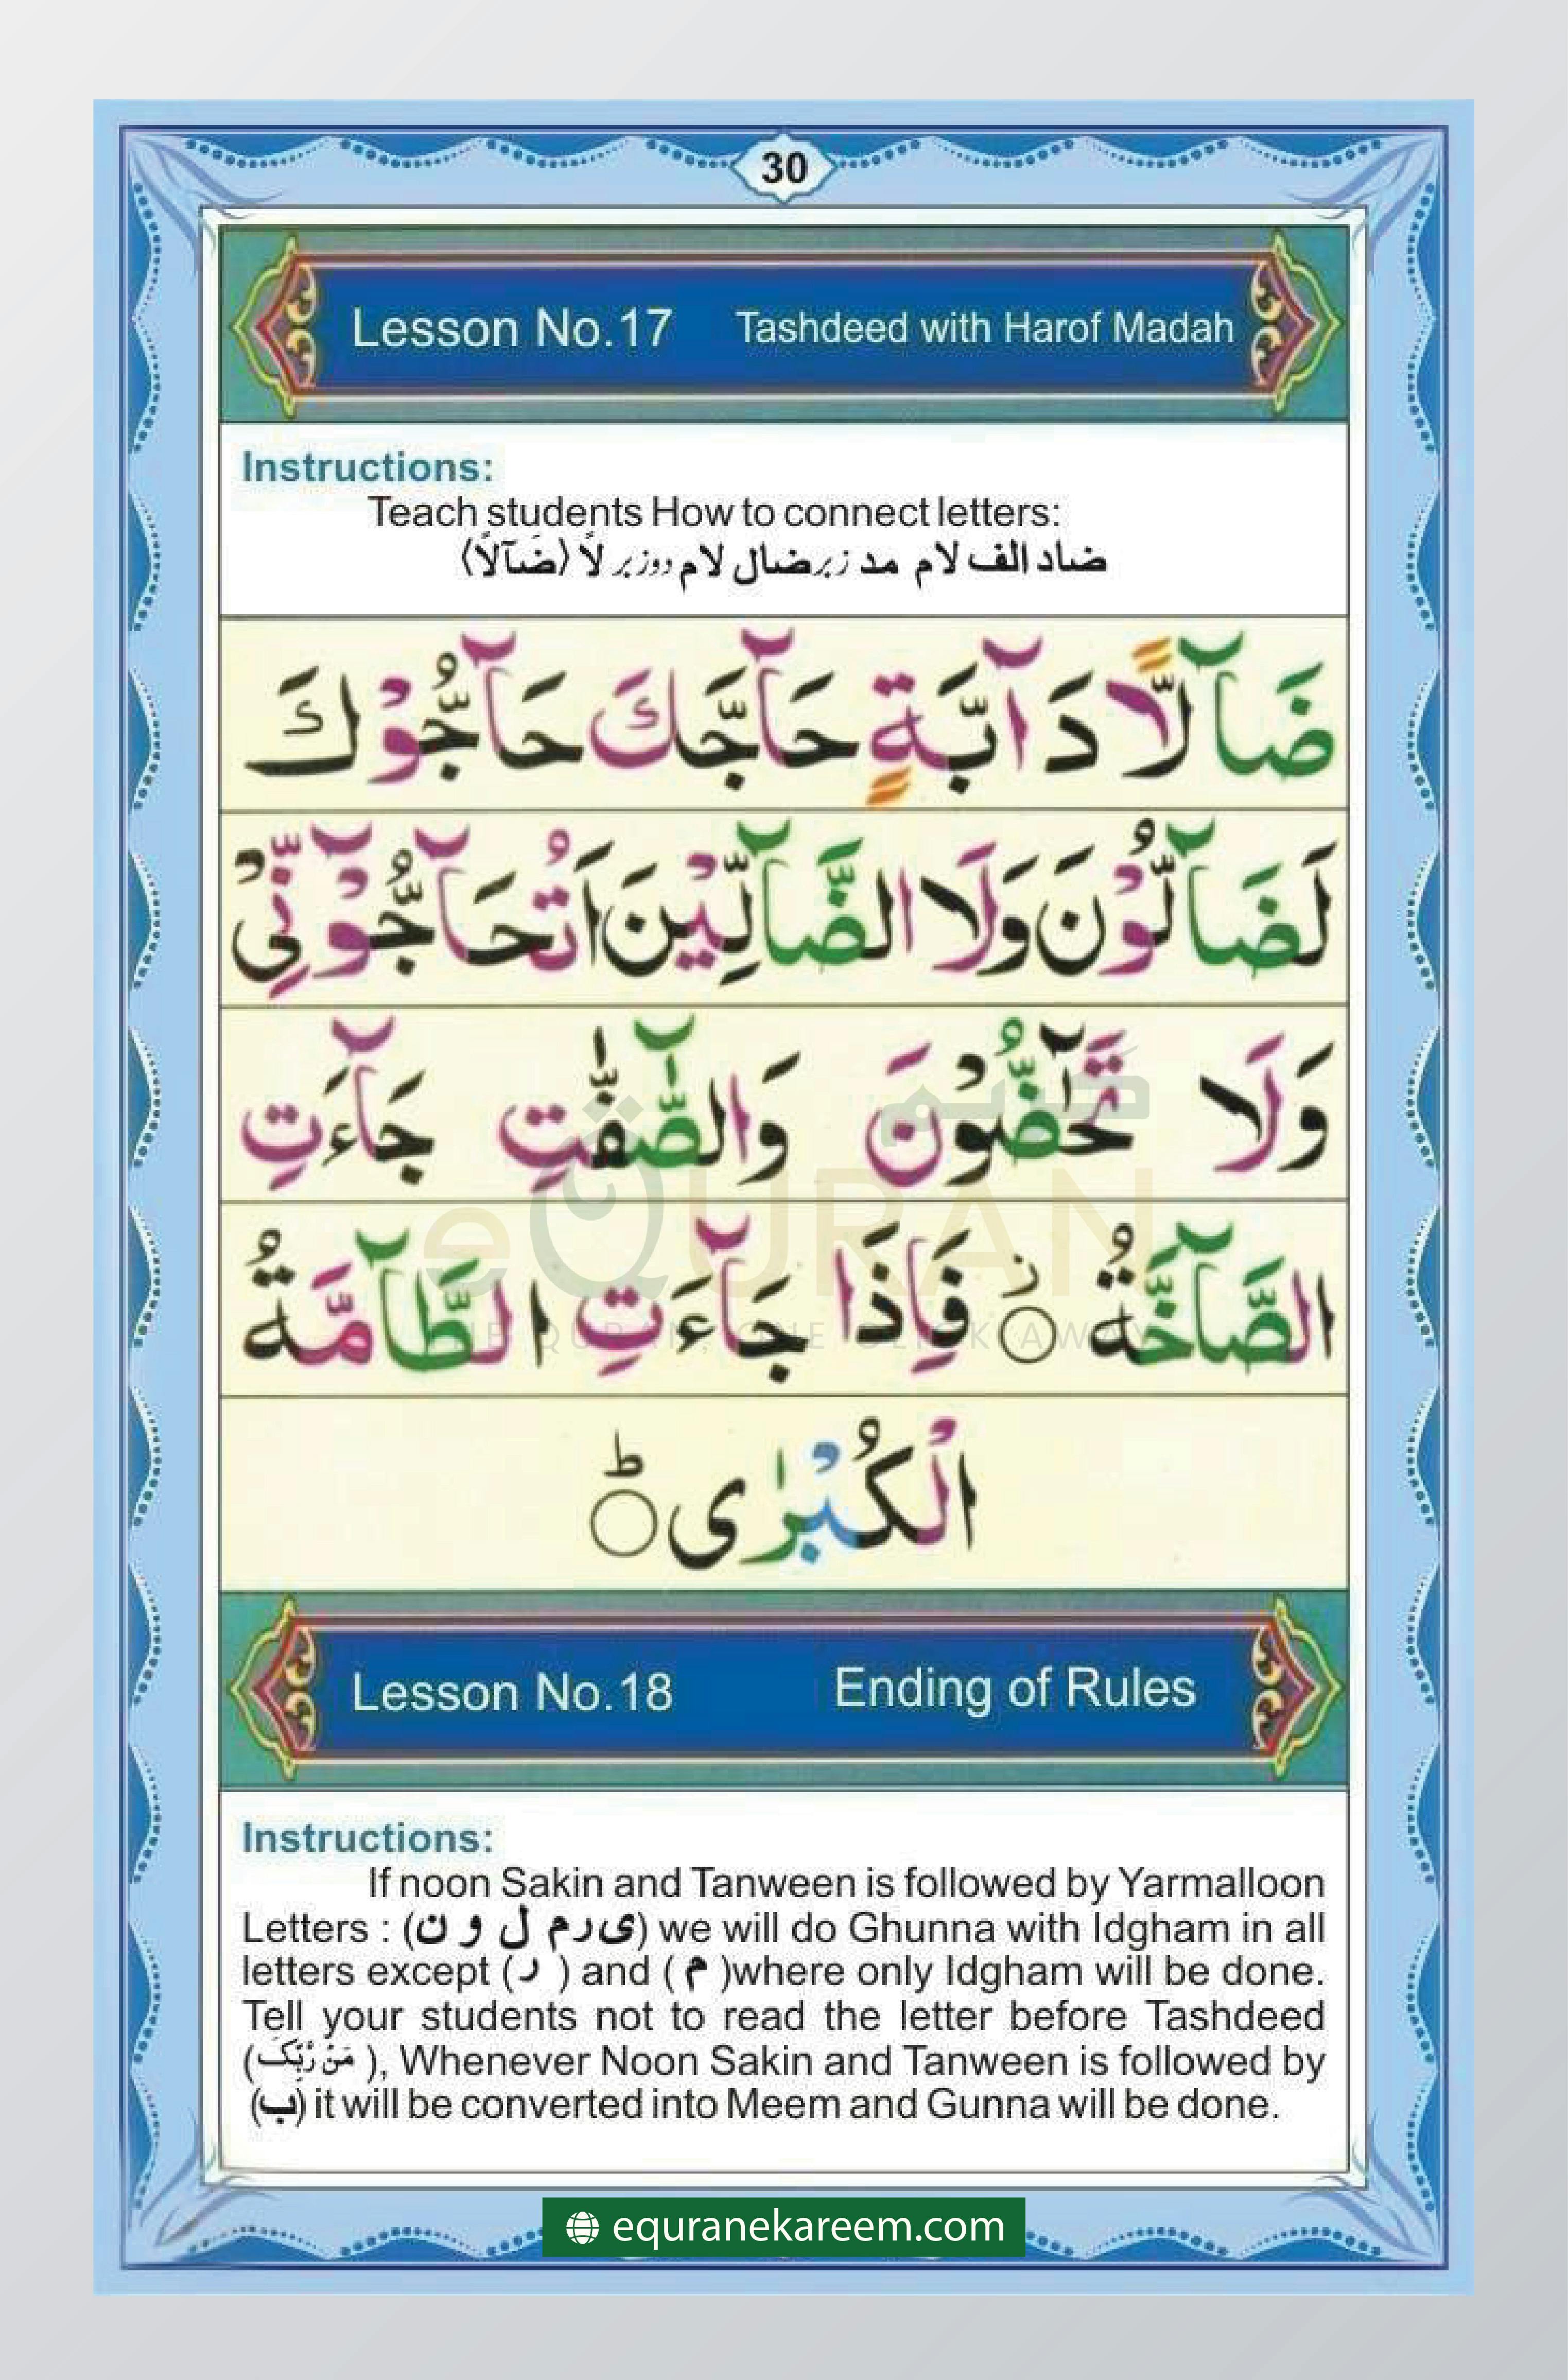 30
Lesson No.17 Tashdeed with Harof Madah
Instructions:
Teach students How to connect letters:
ضاد الف لام مد زبر ضال لام دوزبر لاً (ضَآلاً)
ضَآلًّا دَآبَّةٍ حَآجَّكَ حَآجُّوْكَ
لَضَآلُّوْنَ وَلَا الضَّآلِّيْنَ اَتُحَآجُّوْٓنِّىْ
وَلَا تَحٰٓضُّوْنَ وَالصّٰٓفّٰتِ جَآءَتِ
الصَّآخَّةُ ۝ز فَاِذَا جَآءَتِ الطَّآمَّةُ
الْكُبْرٰى ۝ط
Lesson No.18 Ending of Rules
Instructions:
If noon Sakin and Tanween is followed by Yarmalloon
Letters : (ی ر م ل و ن) we will do Ghunna with Idgham in all
letters except ( ر ) and ( م )where only Idgham will be done.
Tell your students not to read the letter before Tashdeed
(مَنْ رَّبِّکَ ), Whenever Noon Sakin and Tanween is followed by
(ب) it will be converted into Meem and Gunna will be done.
eQURAN
THE QURAN, ONE CLICK AWAY
equranekareem.com